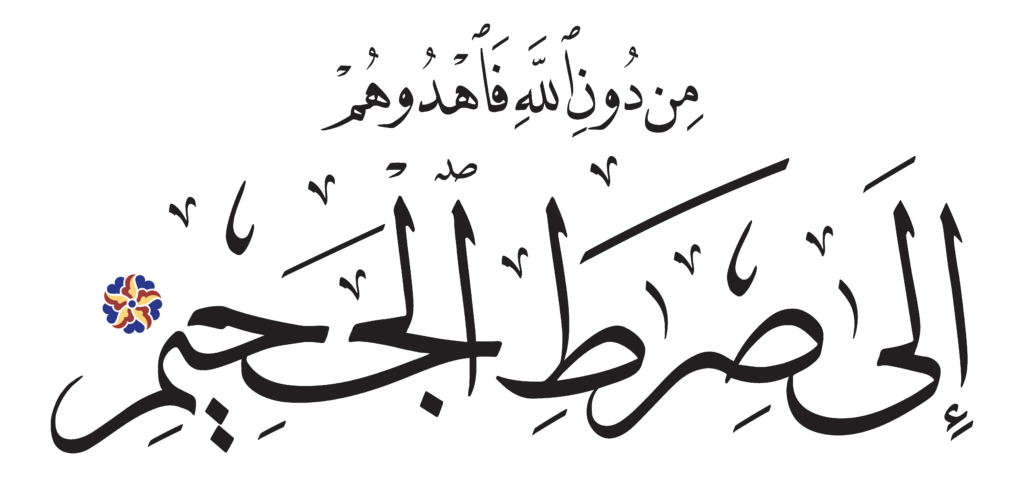 مِن دُونِ ٱللَّهِ فَٱهْدُوهُمْ
إِلَىٰ صِرَٰطِ ٱلْجَحِيمِ